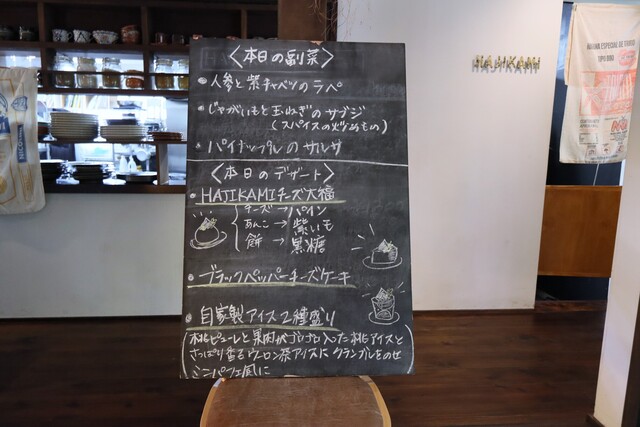 〈本日の副菜〉
• 人参と紫キャベツのラペ
• じゃがいもと玉ねぎのサブジ
(スパイスの炒めもの)
• パイナップルのサルサ
〈本日のデザート〉
• HAJIKAMIチーズ大福
チーズ→パイン
あんこ→紫いも
餅→黒糖
• ブラックペッパーチーズケーキ
• 自家製アイス2種盛り
(桃ピューレと果肉がゴロゴロ入った桃アイスと
さっぱり香るウーロン茶アイスにクランブルをのせ
ミニパフェ風に
HAJIKAMI